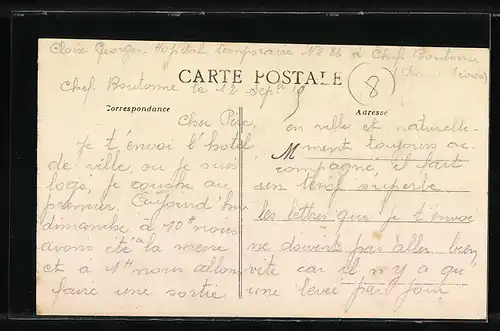 Cloix Georges, Hopital temporaire N° 36 à Chef Boutonne
(Deux Sèvres)
CARTE POSTALE
8
Chef Boutonne le 12 Sept 15
Correspondance
Adresse
Cher Père,
Je t'envoi l'hotel
de ville, ou je suis
logé, je couche au
premier. Aujourd'hui
dimanche à 10h nous
avons été à la messe
et à 1h nous allons
faire une sortie
en ville et naturelle-
ment toujours ac-
compagné, il fait
un temp superbe
les lettres que je t'envoie
ne doivent pas aller bien
vite car il n'y a qu
une levée par jour